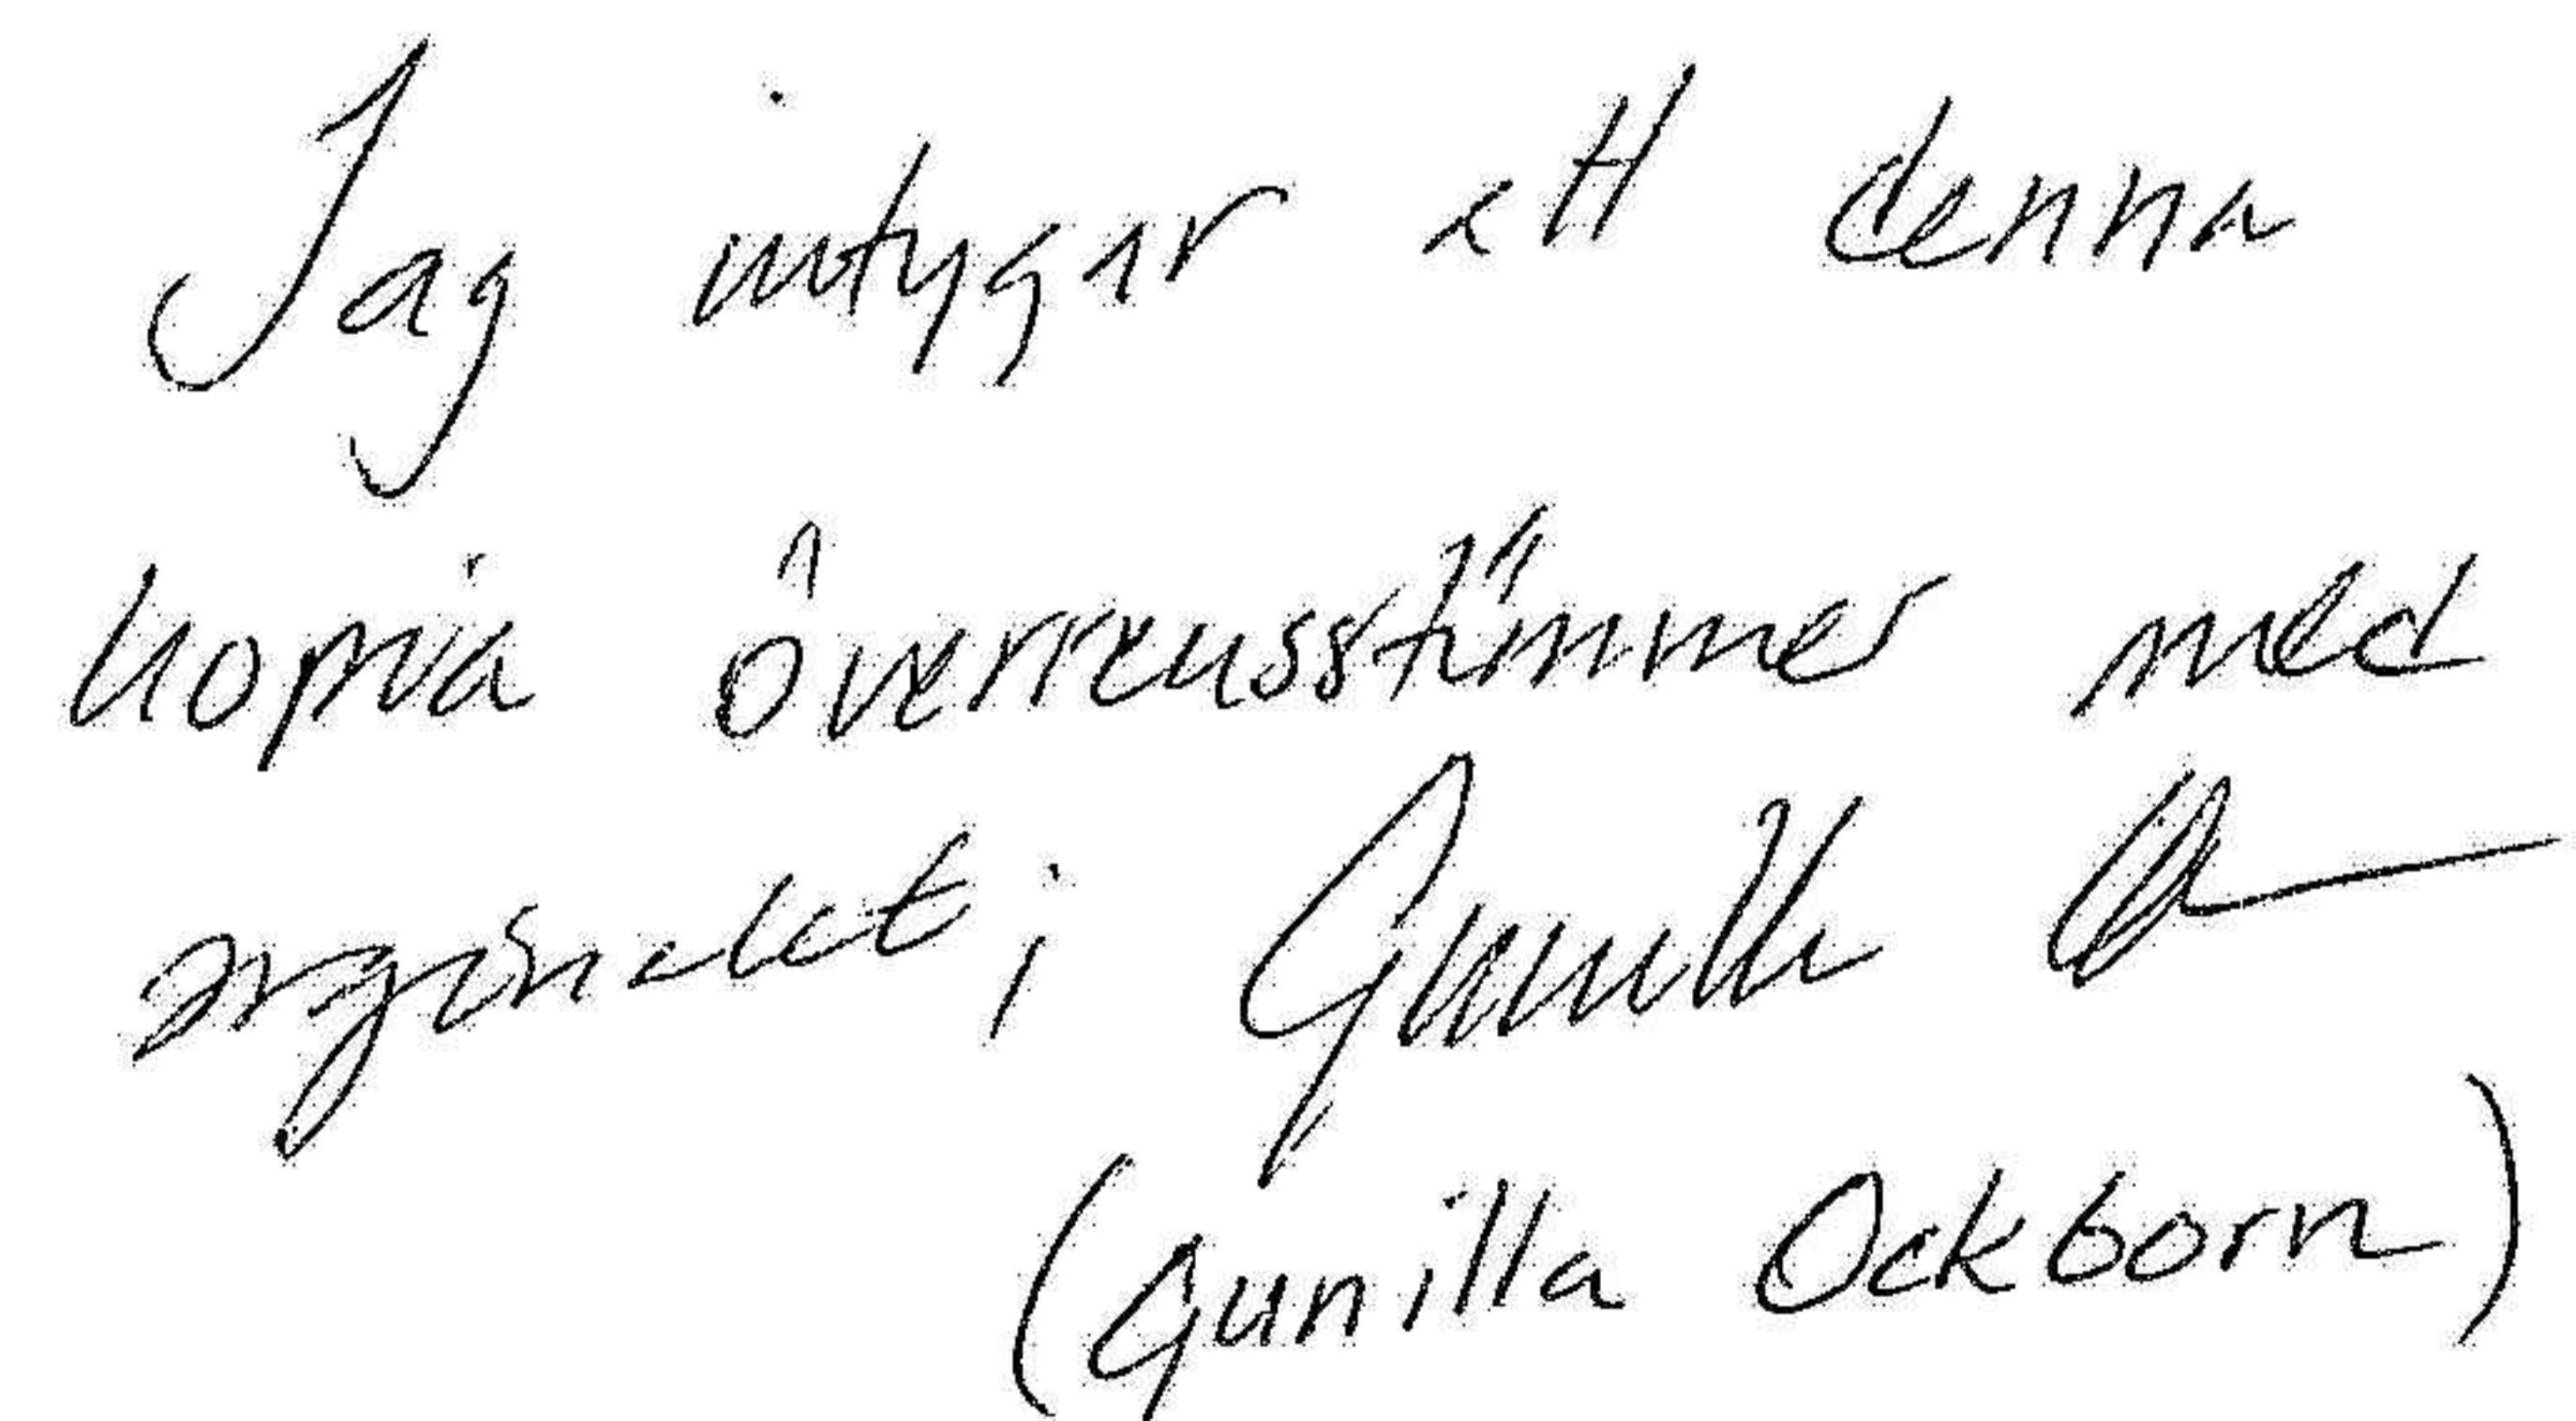 Jag intygar att denna
kopia överrensstämmer med
orginalet; Gunilla
(Gunilla Ockborn)